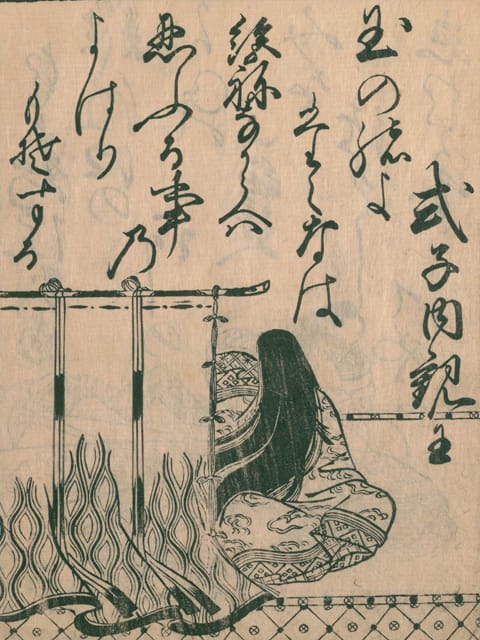 式子内親王
玉の緒よ
たえなは
絶ねなからへは
忍ふる事乃
よはり
もそする